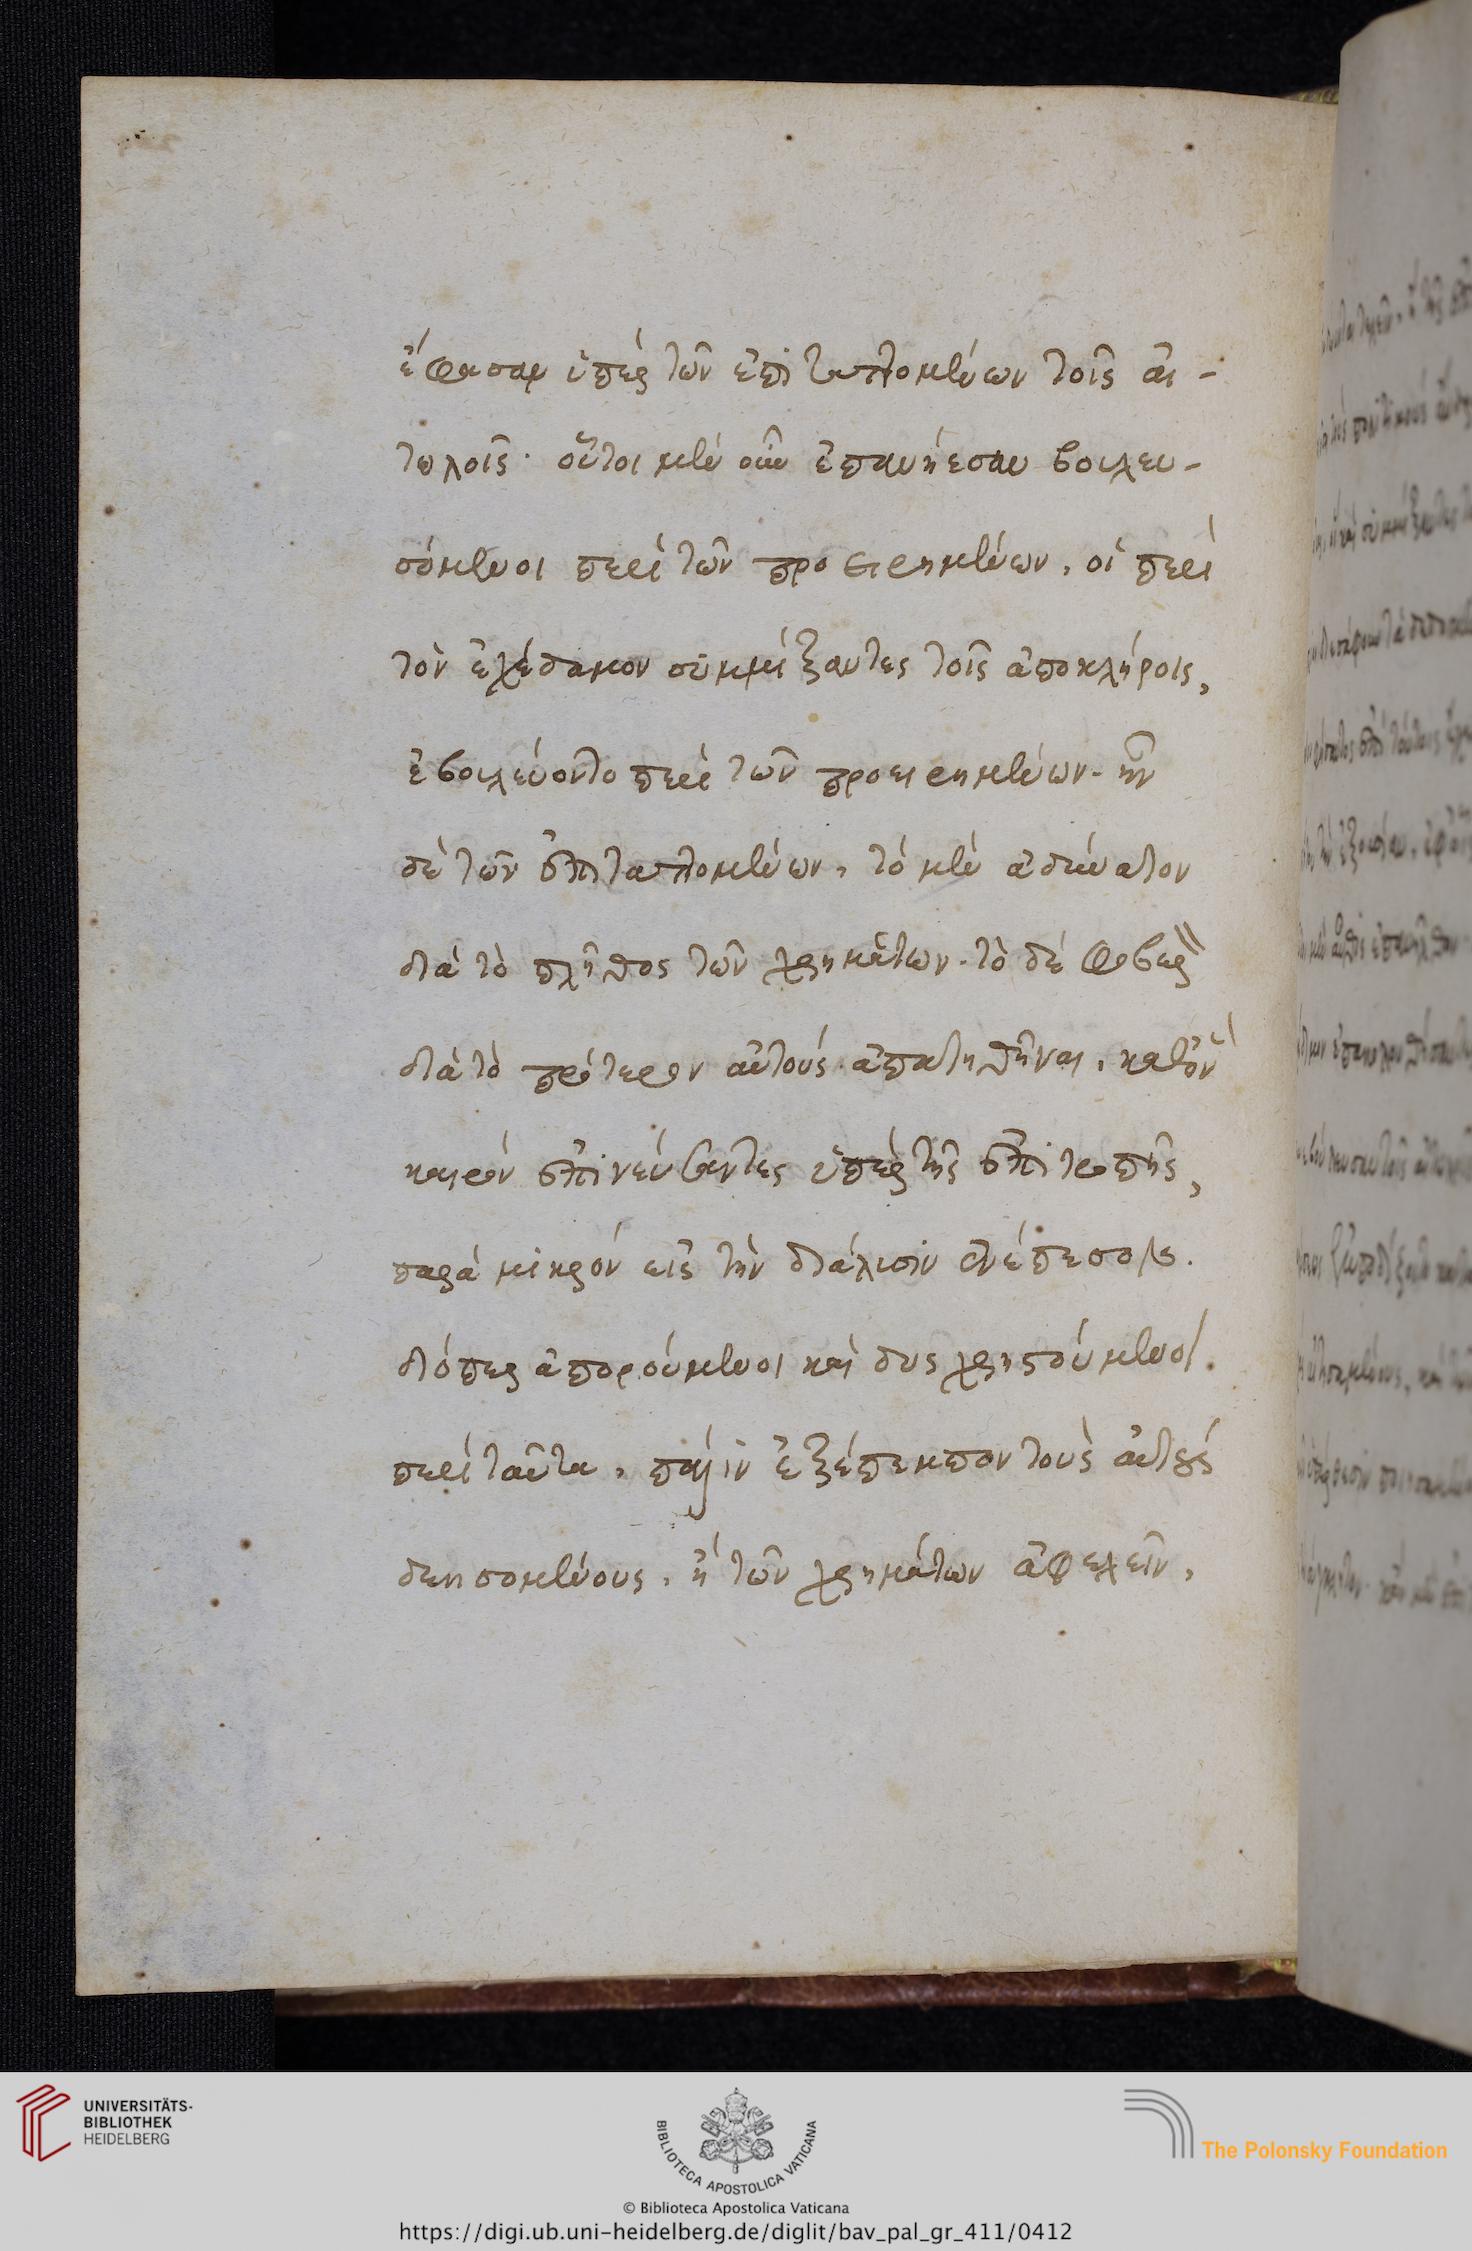 ἔφασαν ὑπὲρ τῶν ἐπιταττομένων τοῖς αἰ-
τωλοῖς· οὗτοι μὲν οὖν ἐπανήεσαν βουλευ-
σόμενοι περὶ τῶν προειρημένων, οἱ περὶ
τὸν ἐχέδαμον συμμίξαντες τοῖς ἀποκλήροις,
ἐβουλεύοντο περὶ τῶν προειρημένων· ἦν
δὲ τῶν ἐπιταττομένων, τὸ μὲν ἀδύνατον
διὰ τὸ πλῆθος τῶν χρημάτων· τὸ δὲ φοβερὸν
διὰ τὸ πρότερον αὐτοὺς ἀπατηθῆναι, καθ' ὃν
καιρὸν ἐπινεύσαντες ὑπὲρ τῆς ἐπιτροπῆς,
παρὰ μικρὸν εἰς τὴν ἅλυσιν ἐνέπεσον.
διόπερ ἀπορούμενοι καὶ δυσχρηστούμενοι
περὶ ταῦτα, πάλιν ἐξέπεμπον τοὺς αὐτοὺς
δεησομένους, ἢ τῶν χρημάτων ἀφελεῖν,
UNIVERSITÄTS-
BIBLIOTHEK
HEIDELBERG
BIBLIOTECA APOSTOLICA VATICANA
The Polonsky Foundation
© Biblioteca Apostolica Vaticana
https://digi.ub.uni-heidelberg.de/diglit/bav_pal_gr_411/0412